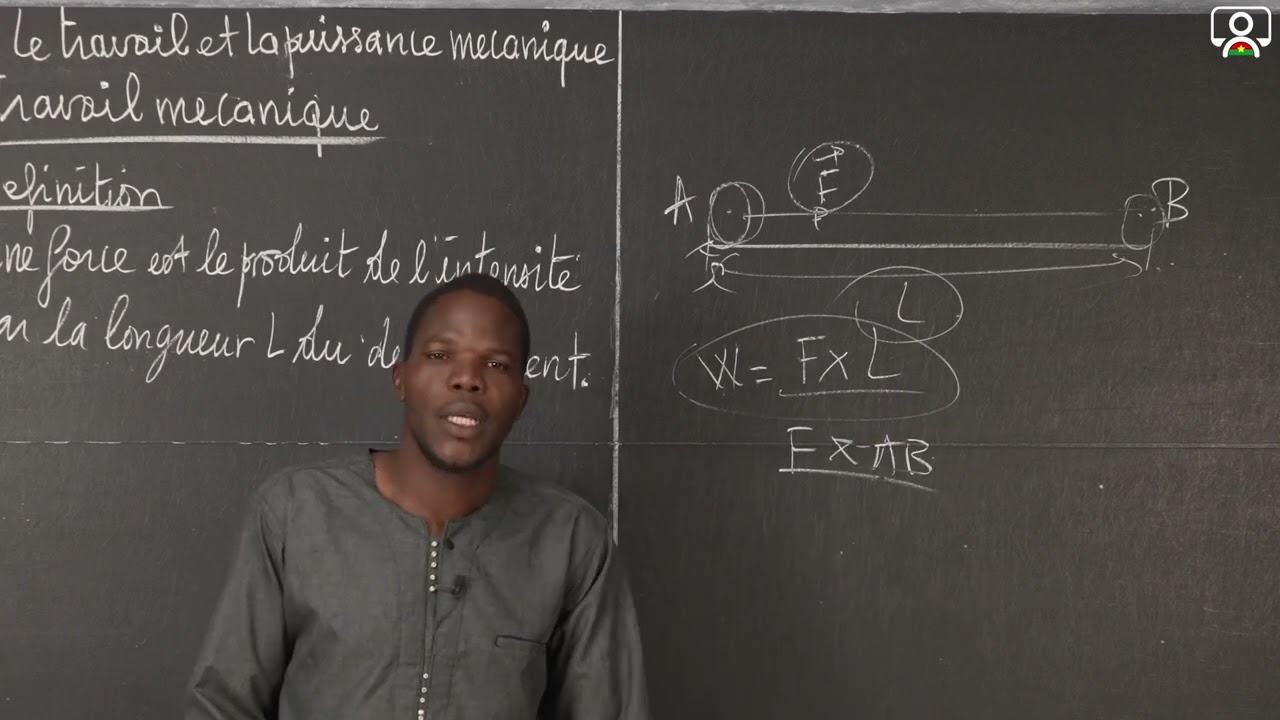 Le travail et la puissance mecanique
ravail mecanique
efinition
ne force est le produit de l'intensité
la longueur L du
A F B
L
W = F x L
F x AB